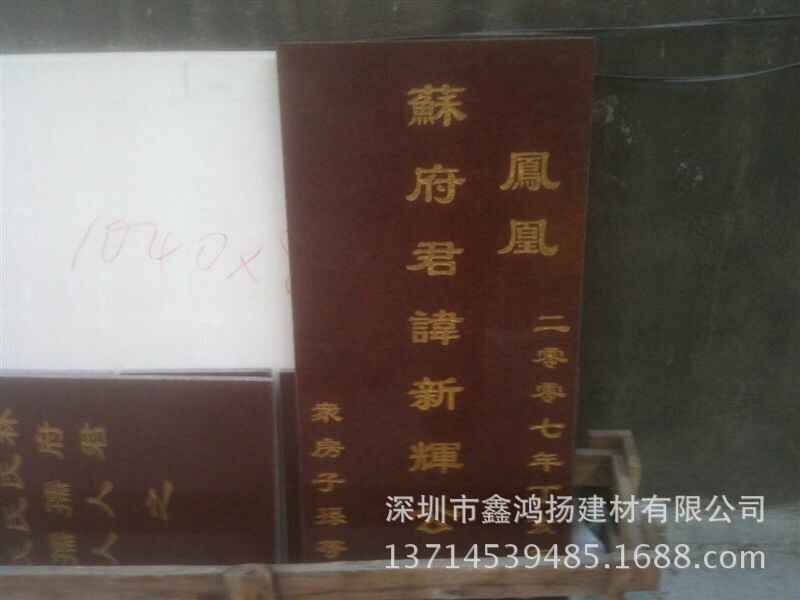 鳳凰
二零零七年丁
蘇府君諱新輝公
衆房子孫等
1040x
府君
氏孺人
氏孺人
之
深圳市鑫鸿扬建材有限公司
13714539485.1688.com